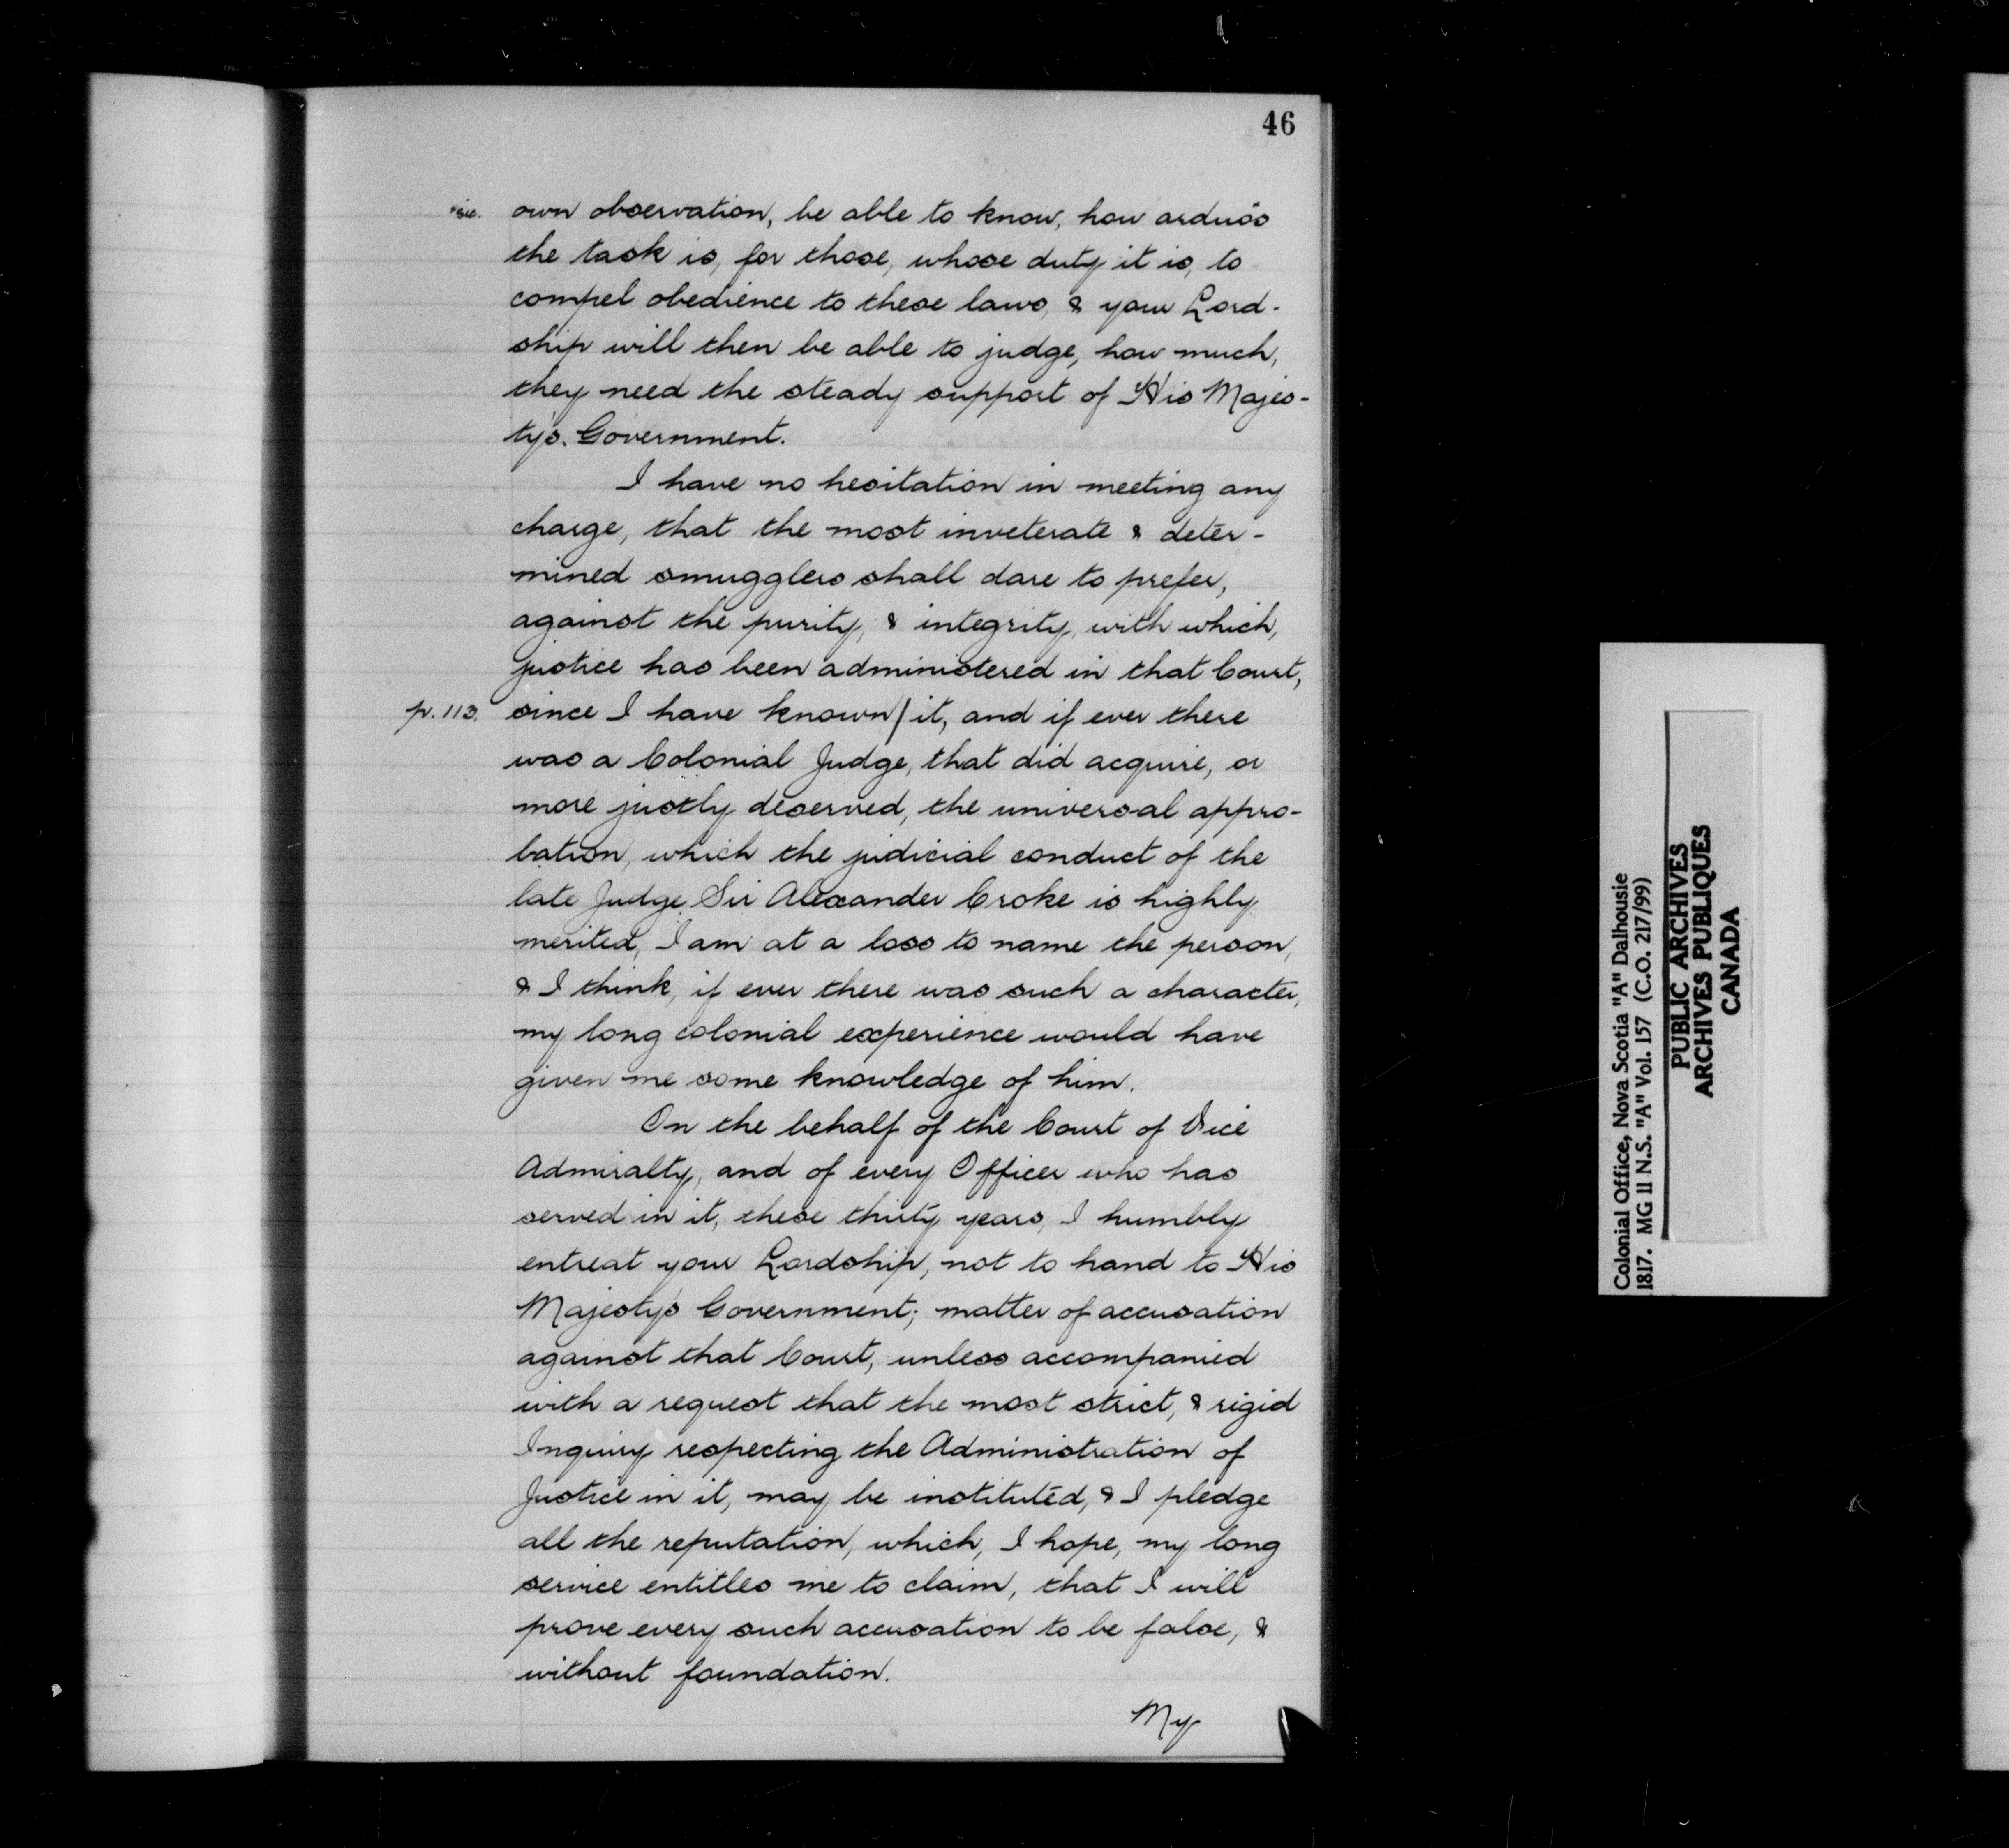 46
sic. own observation, be able to know, how arduõs
the task is, for those, whose duty it is, to
compel obedience to these laws, & your Lord-
ship will then be able to judge, how much,
they need the steady support of His Majes-
ty's. Government.
I have no hesitation in meeting any
charge, that the most inveterate & deter-
mined smugglers shall dare to prefer,
against the purity, & integrity, with which,
justice has been administered in that Court,
p. 113. since I have known/it, and if ever there
was a Colonial Judge, that did acquire, or
more justly deserved, the universal appro-
bation, which the judicial conduct of the
late Judge Sir Alexander Croke is highly
merited, I am at a loss to name the person,
& I think, if ever there was such a character,
my long colonial experience would have
given me some knowledge of him.
On the behalf of the Court of Vice
Admiralty, and of every Officer who has
served in it, these thirty years, I humbly
entreat your Lordship, not to hand to His
Majesty's Government; matter of accusation
against that Court, unless accompanied
with a request that the most strict, & rigid
Inquiry respecting the Administration of
Justice in it, may be instituted, & I pledge
all the reputation, which, I hope, my long
service entitles me to claim, that I will
prove every such accusation to be false, &
without foundation.
My
Colonial Office, Nova Scotia "A" Dalhousie
1817. MG 11 N.S. "A" Vol. 157 (C.O. 217/99)
PUBLIC ARCHIVES
ARCHIVES PUBLIQUES
CANADA